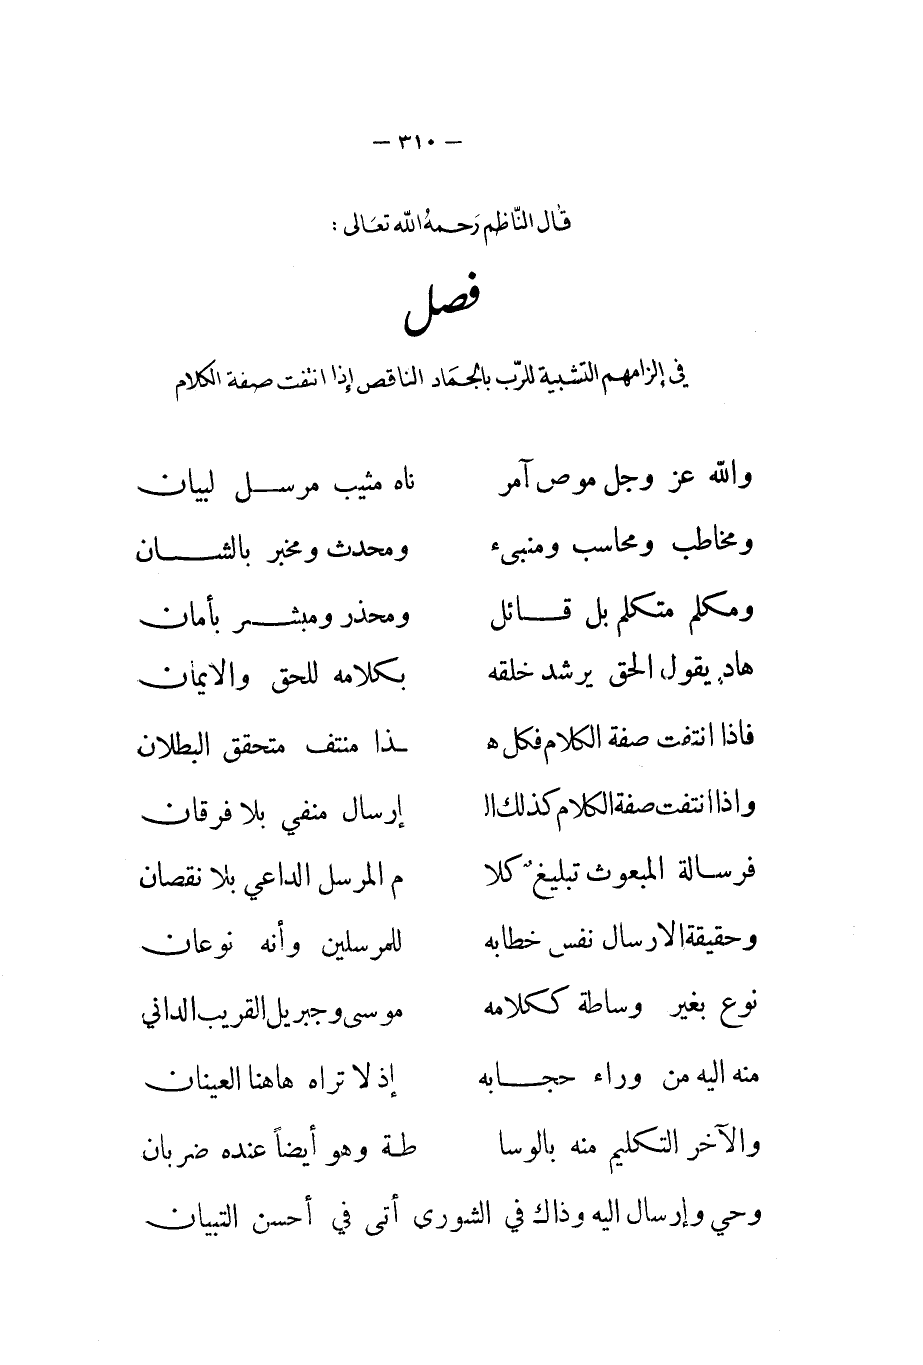 — ٣١٠ —
قَال النَّاظم رَحمهُ الله تعَالى :
فصل
في إلزامهم التشبيه للرّب بالجمَاد الناقص إذا انتفت صفة الكلام
والله عز وجل موص آمر ناه مثيب مرسل لبيان
ومخاطب ومحاسب ومنبىء ومحدث ومخبر بالشان
ومكلم متكلم بل قائل ومحذر ومبشر بأمان
هاد يقول الحق يرشد خلقه بكلامه للحق والايمان
فاذا انتفت صفة الكلام فكل ه ذا منتف متحقق البطلان
واذا انتفت صفة الكلام كذلك ال إرسال منفي بلا فرقان
فرسالة المبعوث تبليغ كلا م المرسل الداعي بلا نقصان
وحقيقة الارسال نفس خطابه للمرسلين وأنه نوعان
نوع بغير وساطة ككلامه موسى وجبريل القريب الداني
منه اليه من وراء حجابه إذ لا تراه هاهنا العينان
والآخر التكليم منه بالوسا طة وهو أيضاً عنده ضربان
وحي وإرسال اليه وذاك في الشورى أتى في أحسن التبيان